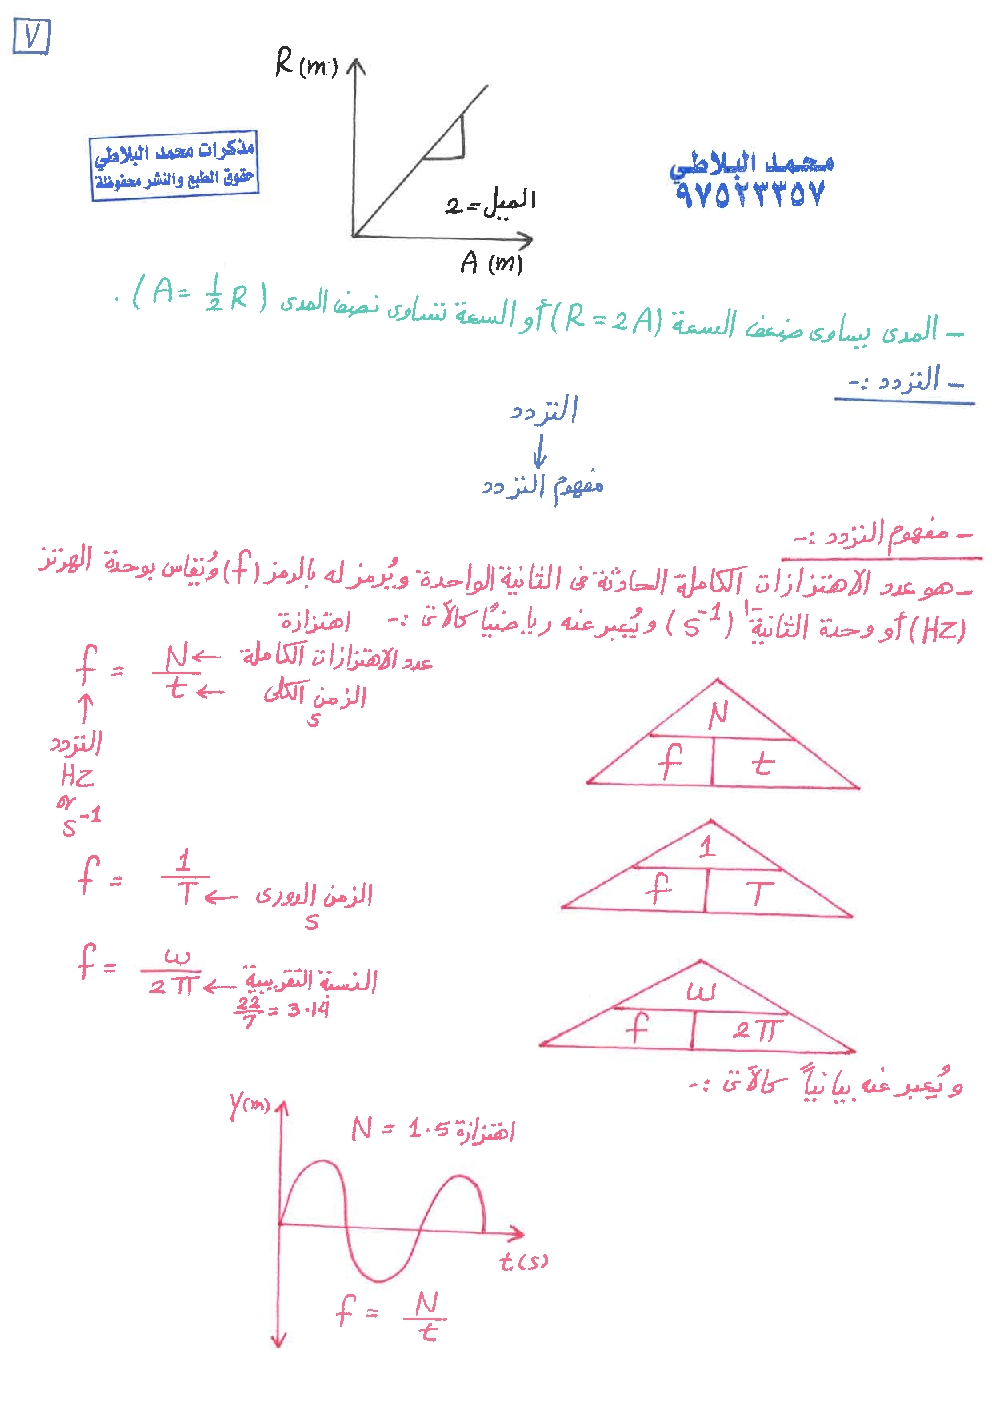 ٧
R (m)
مذكرات محمد البلاطي
حقوق الطبع والنشر محفوظة
محمد البلاطي
٩٧٥٢٣٣٥٧
الميل = 2
A (m)
- المدى يساوى ضعف السعة (R = 2A) أو السعة تساوى نصف المدى (A = 1/2 R) .
- التردد :-
التردد
مفهوم التردد
- مفهوم التردد :-
- هو عدد الاهتزازات الكاملة الحادثة فى الثانية الواحدة ويُرمز له بالرمز (f) وتُقاس بوحدة الهرتز
(HZ) أو وحدة الثانية⁻¹ (s⁻¹) ويُعبر عنه رياضيًا كالآتى :-
اهتزازة
f = N/t
← عدد الاهتزازات الكاملة
← الزمن الكلى
s
↑
التردد
HZ
or
s⁻¹
N
f t
f = 1/T ← الزمن الدورى
s
1
f T
f = ω/2π ← النسبة التقريبية
22/7 = 3.14
ω
f 2π
ويُعبر عنه بيانياً كالآتى :-
y(m)
N = 1.5 اهتزازة
t(s)
f = N/t